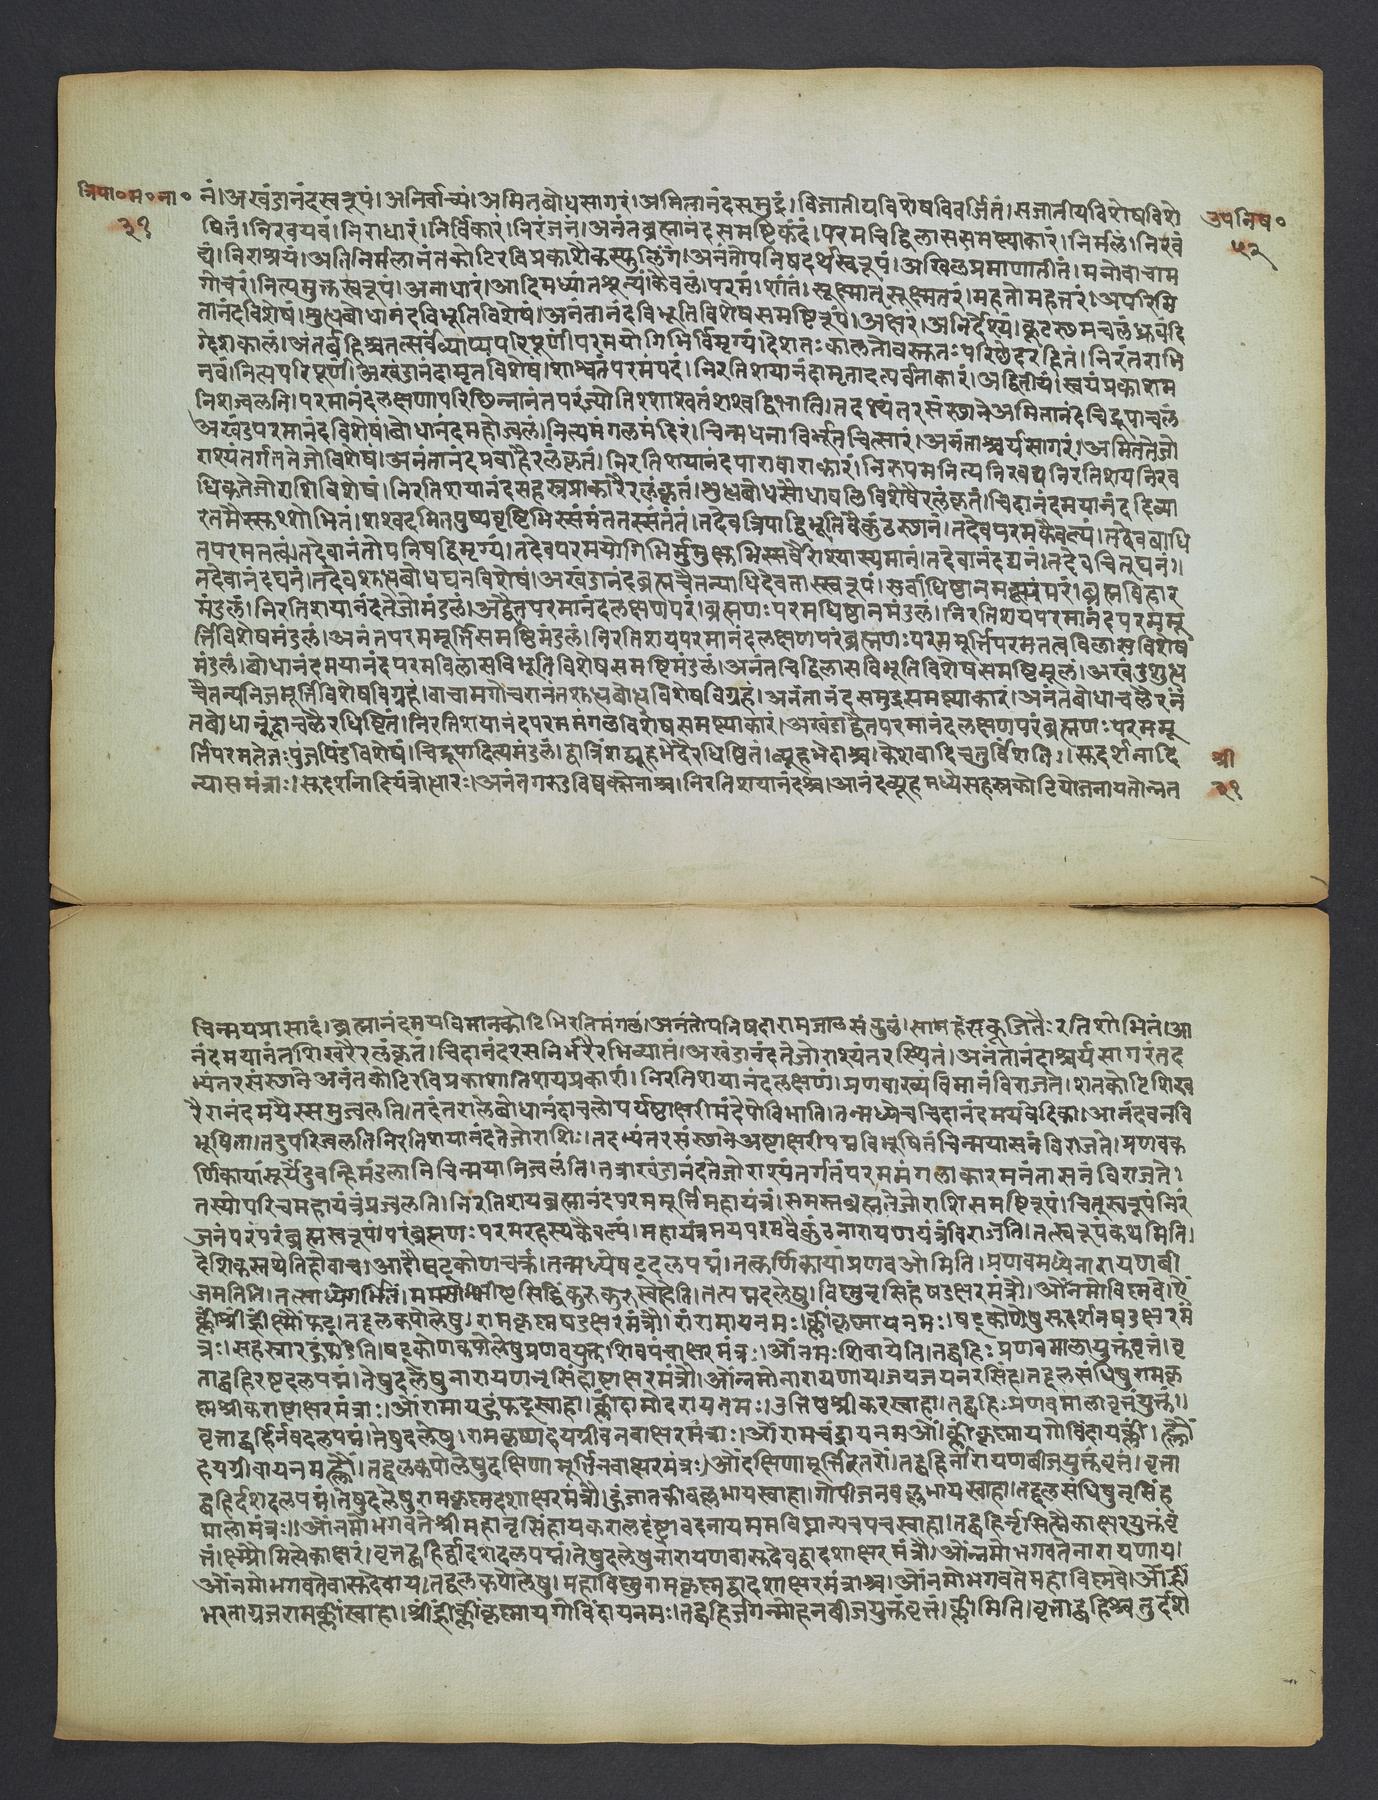 त्रिपा॰म॰ना॰
३१
उपनिष॰
५२
नं।अखंडानंदस्वरूपं।अनिर्वाच्यं।अमितबोधसागरं।अमितानंदसमुद्रं।विजातीयविशेषविवर्जितं।सजातीयविशेषविशे
षितं।निरवयवं।निराधारं।निर्विकारं।निरंजनं।अनंतब्रह्मानंदसमष्टिकंदं।परमचिद्विलाससमष्ट्याकारं।निर्मलं।निरव
द्यं।निराश्रयं।अतिनिर्मलानंतकोटिरविप्रकाशैकस्फुलिंगं।अनंतोपनिषदर्थस्वरूपं।अखिलप्रमाणातीतं।मनोवाचाम
गोचरं।नित्यमुक्तस्वरूपं।अनाधारं।आदिमध्यांतशून्यं।कैवल्यं।परमं।शांतं।सूक्ष्मात्सूक्ष्मतरं।महतोमहत्तरं।अपरिमि
तानंदविशेषं।शुद्धबोधानंदविभूतिविशेषं।अनंतानंदविभूतिविशेषसमष्टिरूपं।अक्षरं।अनिर्देश्यं।कूटस्थमचलंध्रुवंदि
ग्देशकालं।अंतर्बहिश्चतत्सर्वंव्याप्यपरिपूर्णं।परमयोगिभिर्विमृग्यं।देशतःकालतोवस्तुतःपरिछेदरहितं।निरंतराभि
नवं।नित्यपरिपूर्णं।अखंडानंदामृतविशेषं।शाश्वतंपरमंपदं।निरतिशयानंदामृतादत्पर्वताकारं।अद्वितीयं।स्वयंप्रकाशम
निशंज्वलति।परमानंदलक्षणापरिच्छिन्नानंतपरंज्योतिश्शाश्वतंशश्वद्विभाति।तदभ्यंतरसंस्थाने अमितानंदचिद्रूपाचलं
अखंडपरमानंदविशेषं।बोधानंदमहोज्वलं।नित्यमंगलमंदिरं।चिन्मथनाविर्भूतचित्सारं।अनंताश्चर्यसागरं।अमिततेजो
राश्यंतर्गततेजोविशेषं।अनंतानंदप्रवाहैरलंकृतं।निरतिशयानंदपारावाराकारं।निरुपमनित्यनिरवद्यनिरतिशयनिरव
धिकतेजोराशिविशेषं।निरतिशयानंदसहस्रप्राकारैरलंकृतं।शुद्धबोधसौधावलिविशेषैरलंकृतं।चिदानंदमयानंददिव्या
रामैस्सुशोभितं।शश्वदमितपुष्पवृष्टिभिस्समंततस्संततं।तदेवत्रिपाद्विभूतिवैकुंठस्थानं।तदेवपरमकैवल्यं।तदेवबाधि
तपरमतत्वं।तदेवानंतोपनिषद्विमृग्यं।तदेवपरमयोगिभिर्मुमुक्षुभिस्सर्वैराश्यास्यमानं।तदेवानंदघनं।तदेवचित्घनं॥
तदेवानंदघनं।तदेवशुद्धबोधघनविशेषं।अखंडानंदब्रह्मचैतन्याधिदेवतास्वरूपं।सर्वाधिष्ठानमद्वयंपरंब्रह्मविहार
मंडलं।निरतिशयानंदतेजोमंडलं।अद्वैतपरमानंदलक्षणपरंब्रह्मणःपरमधिष्ठानमंडलं।निरतिशयपरमानंदपरममू
र्तिविशेषमंडलं।अनंतपरममूर्तिसमष्टिमंडलं।निरतिशयपरमानंदलक्षणपरंब्रह्मणःपरममूर्तिपरमतत्वविलासविशेष
मंडलं।बोधानंदमयानंदपरमविलासविभूतिविशेषसमष्टिमंडलं।अनंतचिद्विलासविभूतिविशेषसमष्टिमूलं।अखंडशुद्ध
चैतन्यनिजमूर्तिविशेषविग्रहं।वाचामगोचरानंतशुद्धबोधविशेषविग्रहं।अनंतानंदसमुद्रसमष्ट्याकारं।अनंतबोधाचलैरनं
तबोधानंदाचलैरधिष्ठितं।निरतिशयानंदपरममंगलविशेषसमष्ट्याकारं।अखंडाद्वैतपरमानंदलक्षणपरंब्रह्मणःपरममू
र्तिपरमतेजःपुंजपिंडविशेषं।चिद्रूपादित्यमंडलं।द्वात्रिंशद्व्यूहभेदैरधिष्ठितं।व्यूहभेदाश्च।केशवादिचतुर्विंशतिः।सुदर्शनादि
न्यासमंत्राः।सुदर्शनादियंत्रोद्धारः।अनंतगरुडविष्वक्सेनाश्च।निरतिशयानंदश्च।आनंदव्यूहमध्येसहस्रकोटियोजनायतोन्नत
श्री
३१
चिन्मयप्रासादं।ब्रह्मानंदमयविमानकोटिभिरतिमंगलं।अनंतोपनिषदारामजालसंकुलं।सामहंसकूजितैरतिशोभितं।आ
नंदमयानंतशिखरैरलंकृतं।चिदानंदरसनिर्भरैरभिव्याप्तं।अखंडानंदतेजोराश्यंतरस्थितं।अनंतानंदाश्चर्यसागरंतद
भ्यंतरसंस्थाने अनंतकोटिरविप्रकाशातिशयप्रकाशं।निरतिशयानंदलक्षणं।प्रणवाख्यंविमानंविराजते।शतकोटिशिख
रैरानंदमयैस्समुज्वलति।तदंतरालेबोधानंदाचलोपर्यष्टाक्षरीमंटपोविभाति।तन्मध्येचचिदानंदमयवेदिका।आनंदवनवि
भूषिता।तदुपरिज्वलतिनिरतिशयानंदतेजोराशिः।तदभ्यंतरसंस्थाने अष्टाक्षरीपद्मविभूषितंचिन्मयासनंविराजते।प्रणवक
र्णिकायांसूर्येंदुवन्हिमंडलानिचिन्मयानिज्वलंति।तत्राखंडानंदतेजोराश्यंतर्गतंपरममंगलाकारमनंतासनंविराजते।
तस्योपरिचमहायंत्रंप्रज्वलति।निरतिशयब्रह्मानंदपरममूर्तिमहायंत्रं।समस्तब्रह्मतेजोराशिसमष्टिरूपं।चित्स्वरूपंनिरं
जनंपरंपरंब्रह्मस्वरूपं।परंब्रह्मणःपरमरहस्यकैवल्यं।महायंत्रमयपरमवैकुंठनारायणयंत्रंविराजति।तत्स्वरूपंकथमिति।
देशिकस्तथेतिहोवाच।आदौषट्कोणचक्रं।तन्मध्येषट्दलपद्मं।तत्कर्णिकायांप्रणवओमिति।प्रणवमध्येनारायणबी
जमिति।तत्साध्यगर्भितं।ममसर्वाभीष्टसिद्धिंकुरुकुरुस्वाहेति।तत्पद्मदलेषु।विष्णुनृसिंहषडक्षरमंत्रौ।ओंनमोविष्णवे।ऐं
क्लींश्रींह्रींक्ष्मौंफट्।तद्दलकपोलेषु।रामकृष्णषडक्षरमंत्रौ।रांरामायनमः।क्लींकृष्णायनमः।षट्कोणेषुसुदर्शनषडक्षरमं
त्रः।सहस्रारहुंफडिति।षट्कोणकपोलेषुप्रणवयुक्तशिवपंचाक्षरमंत्रः।ओंनमःशिवायेति।तद्बहिःप्रणवमालायुक्तंवृत्तं।वृ
त्ताद्बहिरष्टदलपद्मं।तेषुदलेषुनारायणनृसिंहाष्टाक्षरमंत्रौ।ओंनमोनारायणाय।जयजयनरसिंह।तद्दलसंधिषुरामकृ
ष्णश्रीकराष्टाक्षरमंत्राः।ओंरामायहुंफट्स्वाहा।क्लींदामोदरायनमः।उत्तिष्ठश्रीकरस्वाहा।तद्बहिःप्रणवमालावृत्तंयुक्तं॥
वृत्ताद्बहिर्नवदलपद्मं।तेषुदलेषु।रामकृष्णहयग्रीवनवाक्षरमंत्राः।ओंरामचंद्रायनमओं।क्लींकृष्णायगोविंदायक्लीं।ह्सौं
हयग्रीवायनमह्सौं।तद्दलकपोलेषुदक्षिणामूर्तिनवाक्षरमंत्रः।ओंदक्षिणामूर्तिरतरों।तद्बहिर्नारायणबीजयुक्तंवृत्तं।वृत्ता
द्बहिर्दशदलपद्मं।तेषुदलेषुरामकृष्णदशाक्षरमंत्रौ।हुंजानकीवल्लभायस्वाहा।गोपीजनवल्लभायस्वाहा।तद्दलसंधिषुनृसिंह
मालामंत्रः॥ओंनमोभगवतेश्रीमहानृसिंहायकरालदंष्ट्रवदनायममविघ्नान्पचपचस्वाहा।तद्बहिर्नृसिंहैकाक्षरयुक्तंवृ
त्तं।क्ष्म्रौमित्येकाक्षरं।वृत्ताद्बहिर्द्वादशदलपद्मं।तेषुदलेषुनारायणवासुदेवद्वादशाक्षरमंत्रौ।ओंनमोभगवतेनारायणाय।
ओंनमोभगवतेवासुदेवाय।तद्दलकपोलेषु।महाविष्णुरामकृष्णद्वादशाक्षरमंत्राश्च।ओंनमोभगवतेमहाविष्णवे।ओंह्रीं
भरताग्रजरामक्लींस्वाहा।श्रींह्रींक्लींकृष्णायगोविंदायनमः।तद्बहिर्जगन्मोहनबीजयुक्तंवृत्तं।क्लीमिति।वृत्ताद्बहिश्चतुर्दश